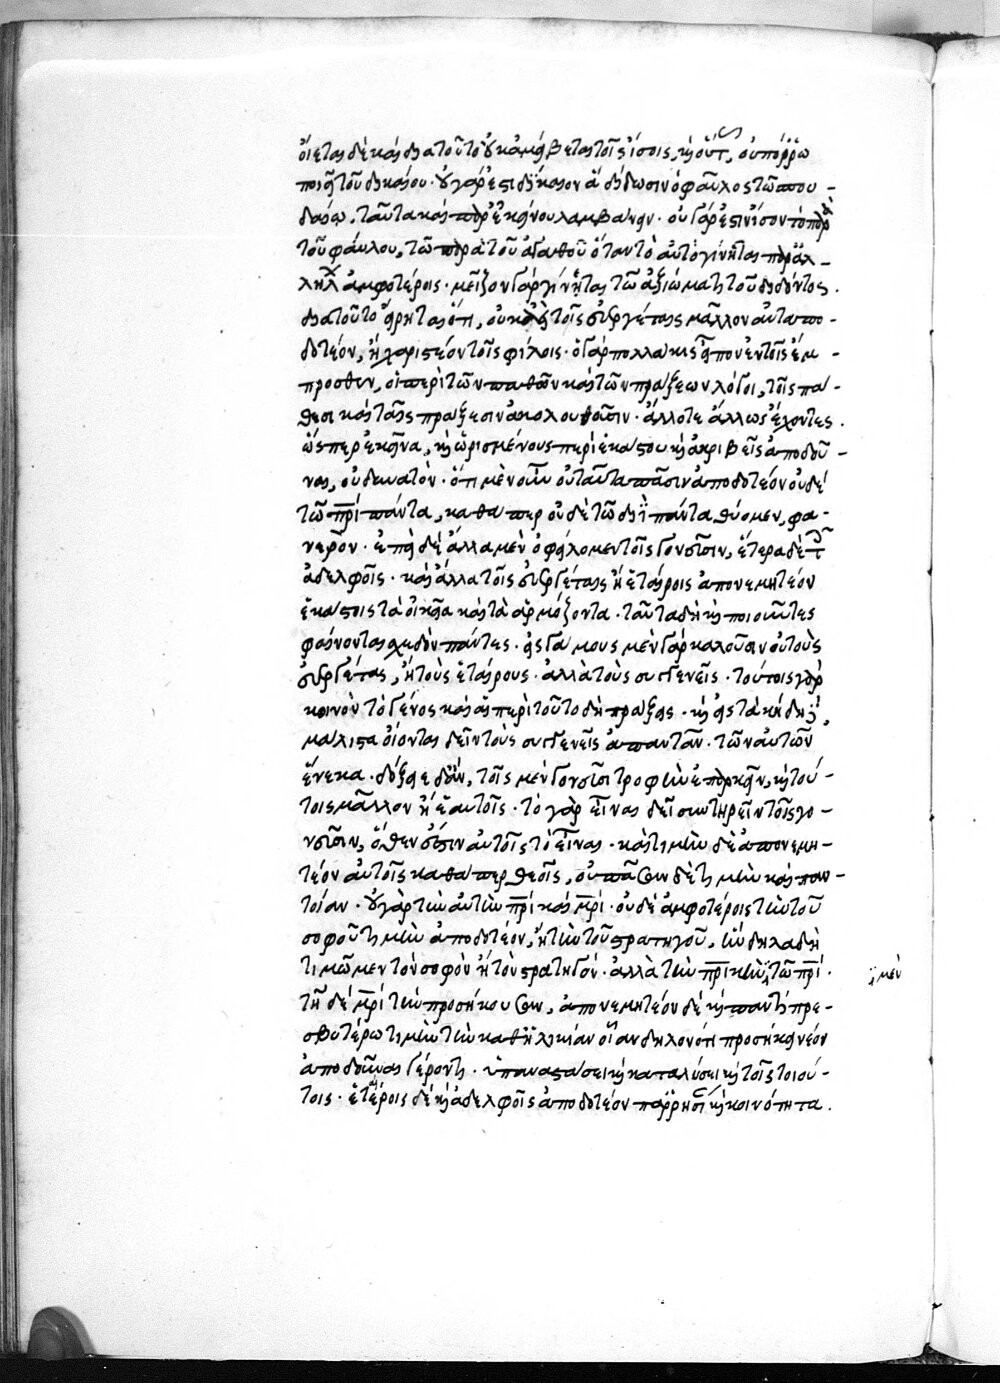 οἴεται δὲ καὶ διὰ τοῦτο οὐκ ἀμείβεται τοῖς ἴσοις, καὶ οὕτως, οὐ πόρρω
ποιεῖ τοῦ δικαίου· οὐ γάρ ἐστι δίκαιον ἃ δίδωσιν ὁ φαῦλος τῶ σπου -
δαίω, ταῦτα καὶ παρ' ἐκείνου λαμβάνειν· οὐ γάρ ἐστιν ἴσον τὸ παρὰ
τοῦ φαύλου, τῶ παρὰ τοῦ ἀγαθοῦ ὅταν τὸ αὐτὸ γίνηται παράλ -
ληλον ἀμφοτέροις· μεῖζον γὰρ γίνεται τῶ ἀξιώματι τοῦ διδόντος.
διὰ τοῦτο εἴρηται ὅτι, οὐκ τοῖς εὐεργέταις μᾶλλον ἀνταπο -
δοτέον, ἢ χαριστέον τοῖς φίλοις· ὃ γὰρ πολλάκις εἶπον ἐν τοῖς ἔμ -
προσθεν, οἱ περὶ τῶν παθῶν καὶ τῶν πράξεων λόγοι, τοῖς πά -
θεσι καὶ ταῖς πράξεσιν ἀκολουθοῦσιν· ἄλλοτε ἄλλως ἔχοντες.
ὥσπερ ἐκεῖνα, καὶ ὡρισμένους περὶ ἑκάστου καὶ ἀκριβεῖς ἀποδοῦ -
ναι, οὐ δυνατὸν· ὅτι μὲν οὖν οὐ ταῦτα πᾶσιν ἀποδοτέον οὐδὲ
τῶ πρὶ πάντα, καθάπερ οὐδὲ τῶ διῒ πάντα θύομεν, φα -
νερὸν· ἐπεὶ δὲ ἄλλα μὲν ὀφείλομεν τοῖς γονεῦσιν, ἕτερα δὲ τοῖς
ἀδελφοῖς· καὶ ἄλλα τοῖς εὐεργέταις ἢ ἑταίροις ἀπονεμητέον
ἑκάστοις τὰ οἰκεῖα καὶ τὰ ἁρμόζοντα· ταῦτα δὴ καὶ ποιοῦντες
φαίνονται σχεδὸν πάντες· εἰς γάμους μὲν γὰρ καλοῦσιν οὐ τοὺς
εὐεργέτας, ἢ τοὺς ἑταίρους· ἀλλὰ τοὺς συγγενεῖς· τούτοις γὰρ
κοινὸν τὸ γένος καὶ αἱ περὶ τοῦτο δὴ πράξεις· καὶ εἰς τὰ κήδη,
μάλιστα οἴονται δεῖν τοὺς συγγενεῖς ἀπαντᾶν· τῶν αὐτῶν
ἕνεκα· δόξειε δ' ἂν, τοῖς μὲν γονεῦσι τροφὴν ἐπαρκεῖν, καὶ τού -
τοις μᾶλλον ἢ ἑαυτοῖς· τὸ γὰρ εἶναι δεῖ σωτηρεῖν τοῖς γο -
νεῦσιν, ὅθεν ἐστὶν αὐτοῖς τὸ εἶναι· καὶ τιμὴν δὲ ἀπονεμη -
τέον αὐτοῖς καθάπερ θεοῖς, οὐ πᾶσαν δὲ τιμὴν καὶ παν -
τοίαν· οὐ γὰρ τὴν αὐτὴν πρὶ καὶ μρὶ· οὐδὲ ἀμφοτέροις τὴν τοῦ
σοφοῦ τιμὴν ἀποδοτέον, ἢ τὴν τοῦ στρατηγοῦ, ἣν δηλαδὴ
τιμῶμεν τὸν σοφὸν ἢ τὸν στρατηγόν· ἀλλὰ τὴν πρικὴν τῶ πρὶ· μὲν
τῆ δὲ μρὶ τὴν προσήκουσαν, ἀπονεμητέον δὲ καὶ παντὶ πρε -
σβυτέρω τιμὴν τὴν καθ' ἡλικίαν οἵαν δηλονότι προσήκει νέον
ἀποδοῦναι γέροντι· ὑπαναστάσει καὶ καταλύσει καὶ τοῖς τοιού -
τοις· ἑταίροις δὲ καὶ ἀδελφοῖς ἀποδοτέον παρρησίαν καὶ κοινότητα.